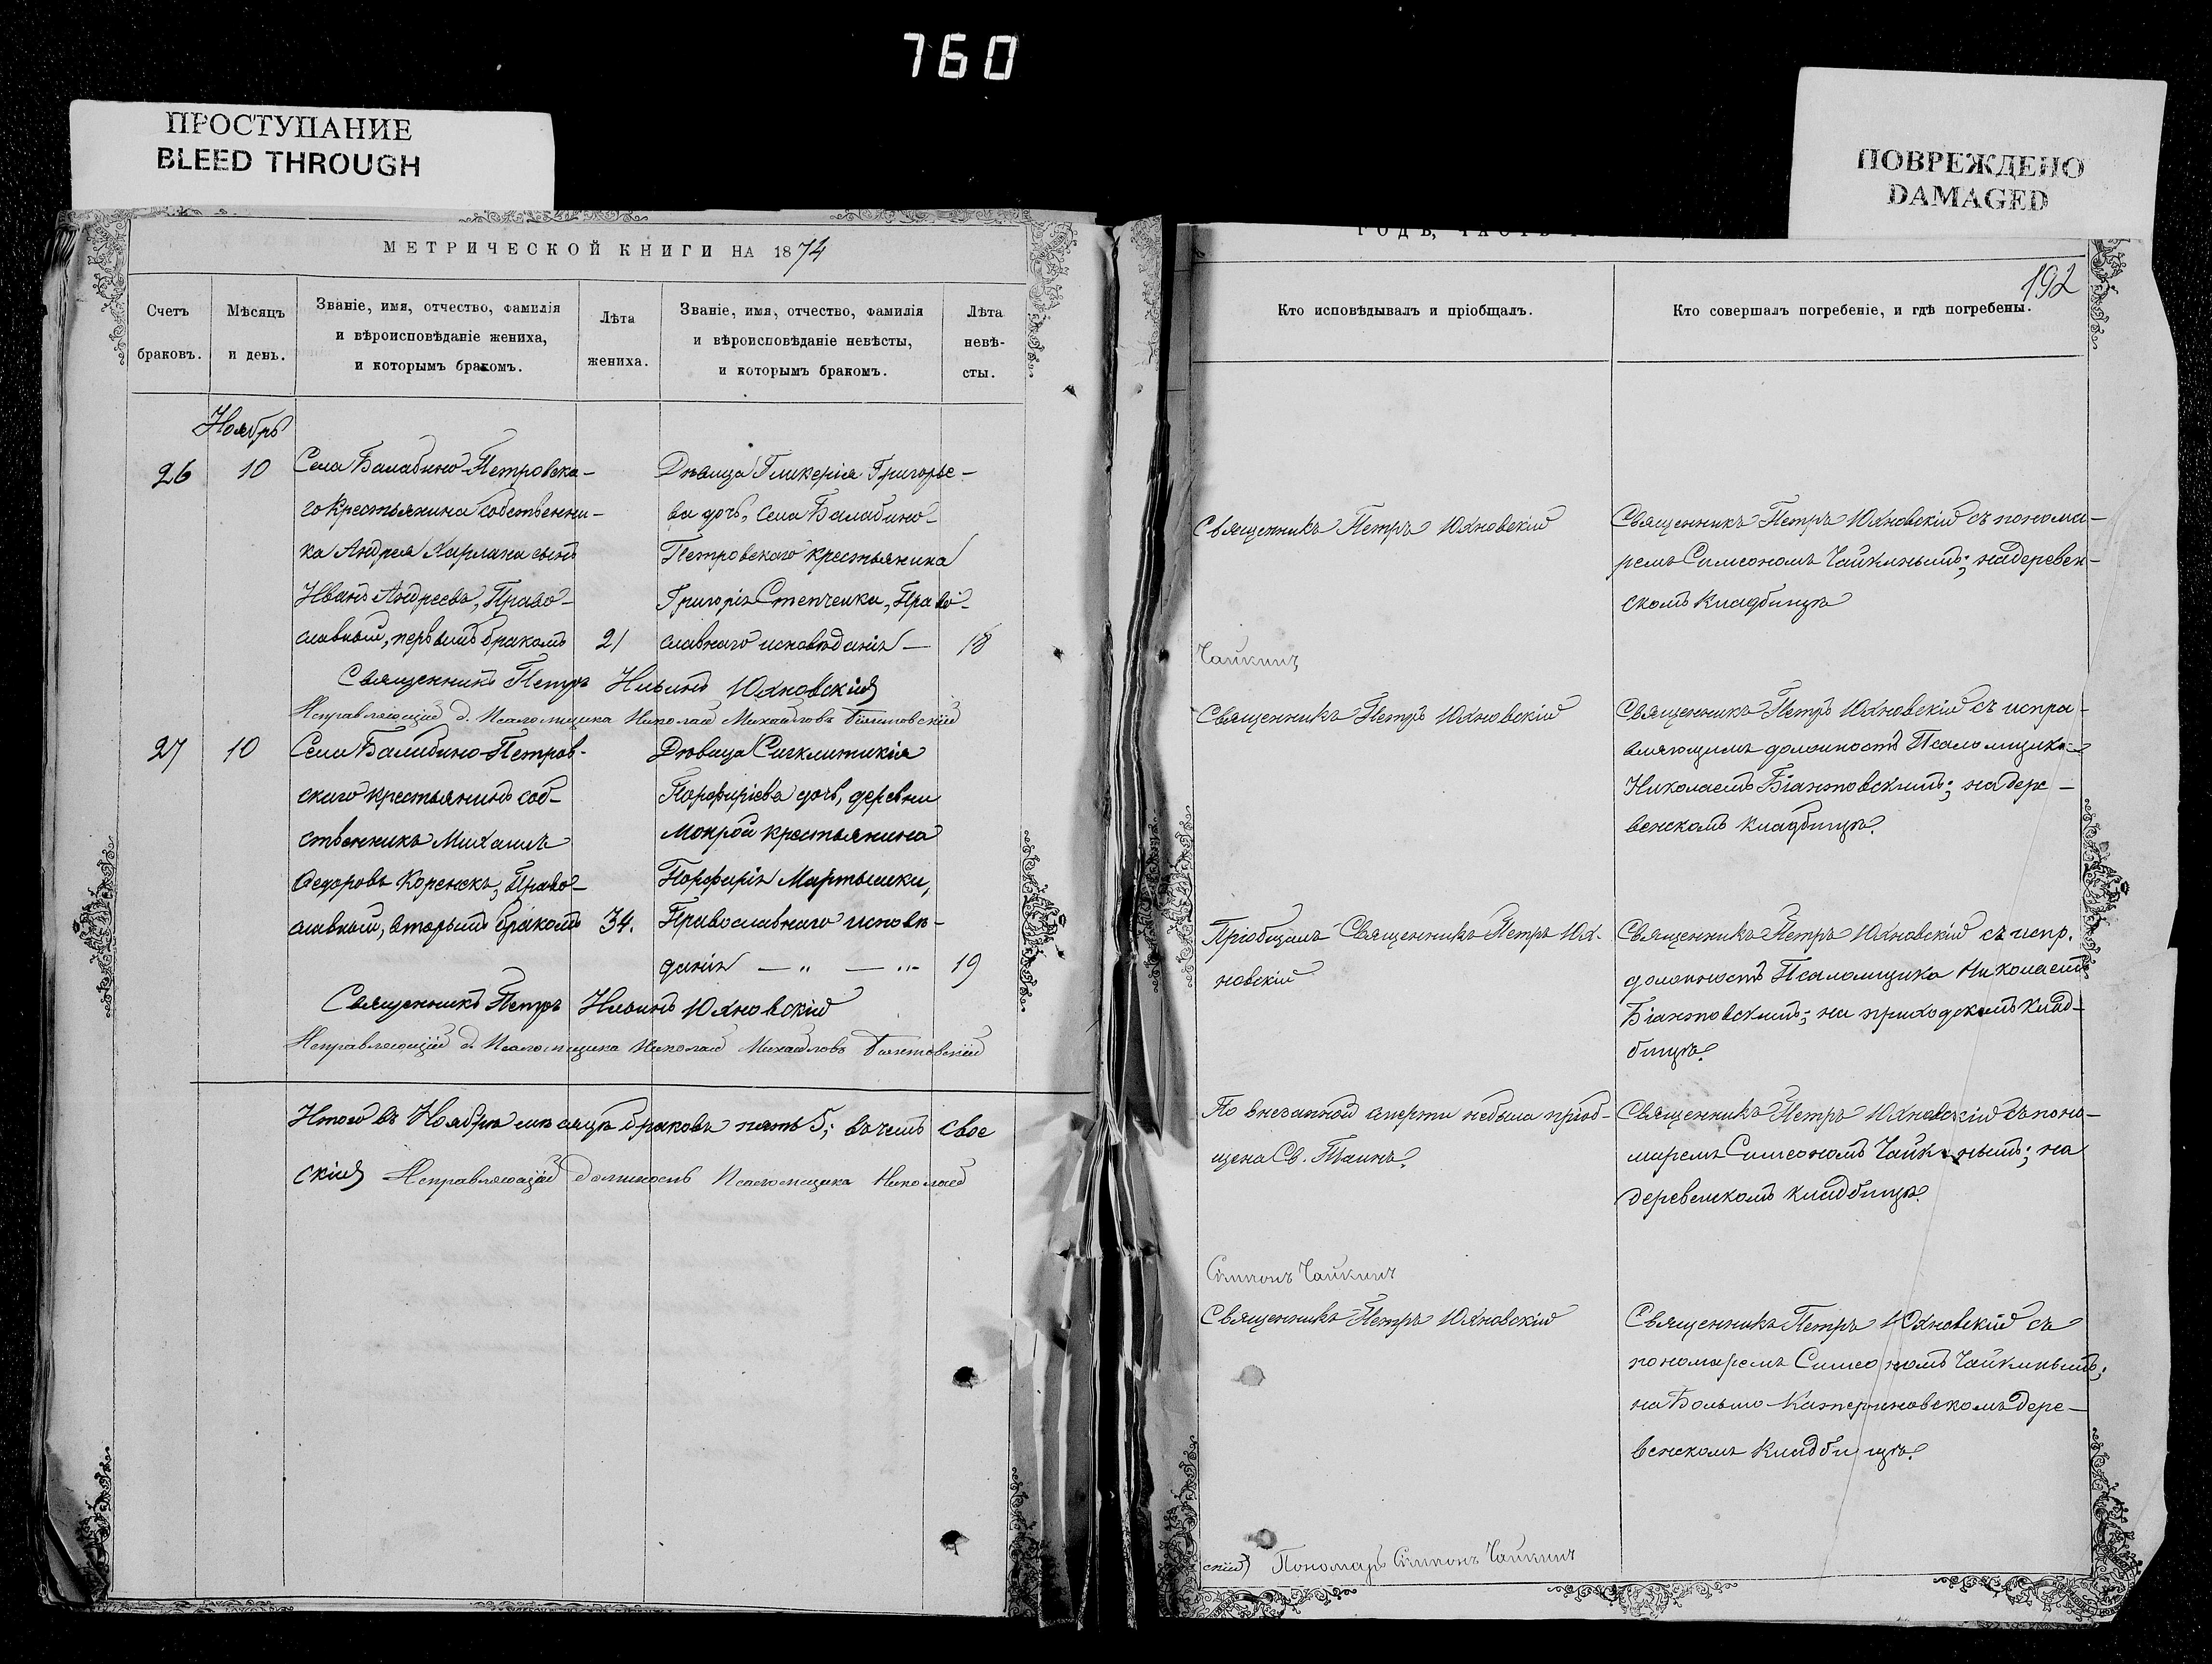 760
ПРОСТУПАНИЕ
BLEED THROUGH
ПОВРЕЖДЕНО
DAMAGED
МЕТРИЧЕСКОЙ КНИГИ НА 1874
Счетъ браковъ.
Мѣсяцъ и день.
Званіе, имя, отчество, фамилія
и вѣроисповѣданіе жениха,
и которымъ бракомъ.
Лѣта жениха.
Званіе, имя, отчество, фамилія
и вѣроисповѣданіе невѣсты,
и которымъ бракомъ.
Лѣта невѣ-
сты.
Ноябрь
26
10
Села Балабино-Петровска-
го крестьянина собственни-
ка Андрея Харлана сынъ
Иванъ Андреевъ, Право-
славный, первымъ бракомъ
21
Дѣвица Гликерія Григорье-
ва дочь, села Балабино-
Петровскаго крестьянина
Григорія Степченка, Право-
славнаго исповѣданія —
18
Священникъ Петръ Ильинъ Юхновскій
Исправляющій д. Псаломщика Николай Михайловъ
27
10
Села Балабино-Петров-
скаго крестьянинъ соб-
ственникъ Михаилъ
Ѳедоровъ Коренекъ, Право-
славный, вторымъ бракомъ
34.
Дѣвица Сигклитикія
Порфиріева дочь, деревни
Мокрой крестьянина
Порфирія Мартышки,
Православнаго исповѣ-
данія — „ — „ -
19
Священникъ Петръ Ильинъ Юхновскій
Исправляющій д. Псаломщика Николай Михайловъ
Итого въ Ноябрѣ мѣсяцѣ браковъ пять 5; въ чемъ свое
скій Исправляющій должность Псаломщика Николай
192
Кто исповѣдывалъ и пріобщалъ.
Кто совершалъ погребеніе, и гдѣ погребены.
Священникъ Петръ Юхновскій
Священникъ Петръ Юхновскій съ понома-
ремъ Симеономъ Чайкинымъ; на деревен-
скомъ кладбищѣ
Чайкинъ
Священникъ Петръ Юхновскій
Священникъ Петръ Юхновскій съ испра-
вляющимъ должность Псаломщика
Николаемъ Біантовскимъ; на дере-
венскомъ кладбищѣ.
Пріобщалъ Священникъ Петръ Юх-
новскій
Священникъ Петръ Юхновскій съ испр.
должность Псаломщика Николаемъ
Біантовскимъ; на приходскомъ клад-
бищѣ.
По внезапной смерти небыла пріоб-
щена Св. Таинъ.
Священникъ Петръ Юхновскій съ поно-
маремъ Симеономъ Чайкинымъ; на
деревенскомъ кладбищѣ.
Симеонъ Чайкинъ
Священникъ Петръ Юхновскій
Священникъ Петръ Юхновскій съ
пономаремъ Симеономъ Чайкинымъ;
на Больше-Катериновскомъ дере-
венскомъ кладбищѣ.
скій Пономарь Симеонъ Чайкинъ